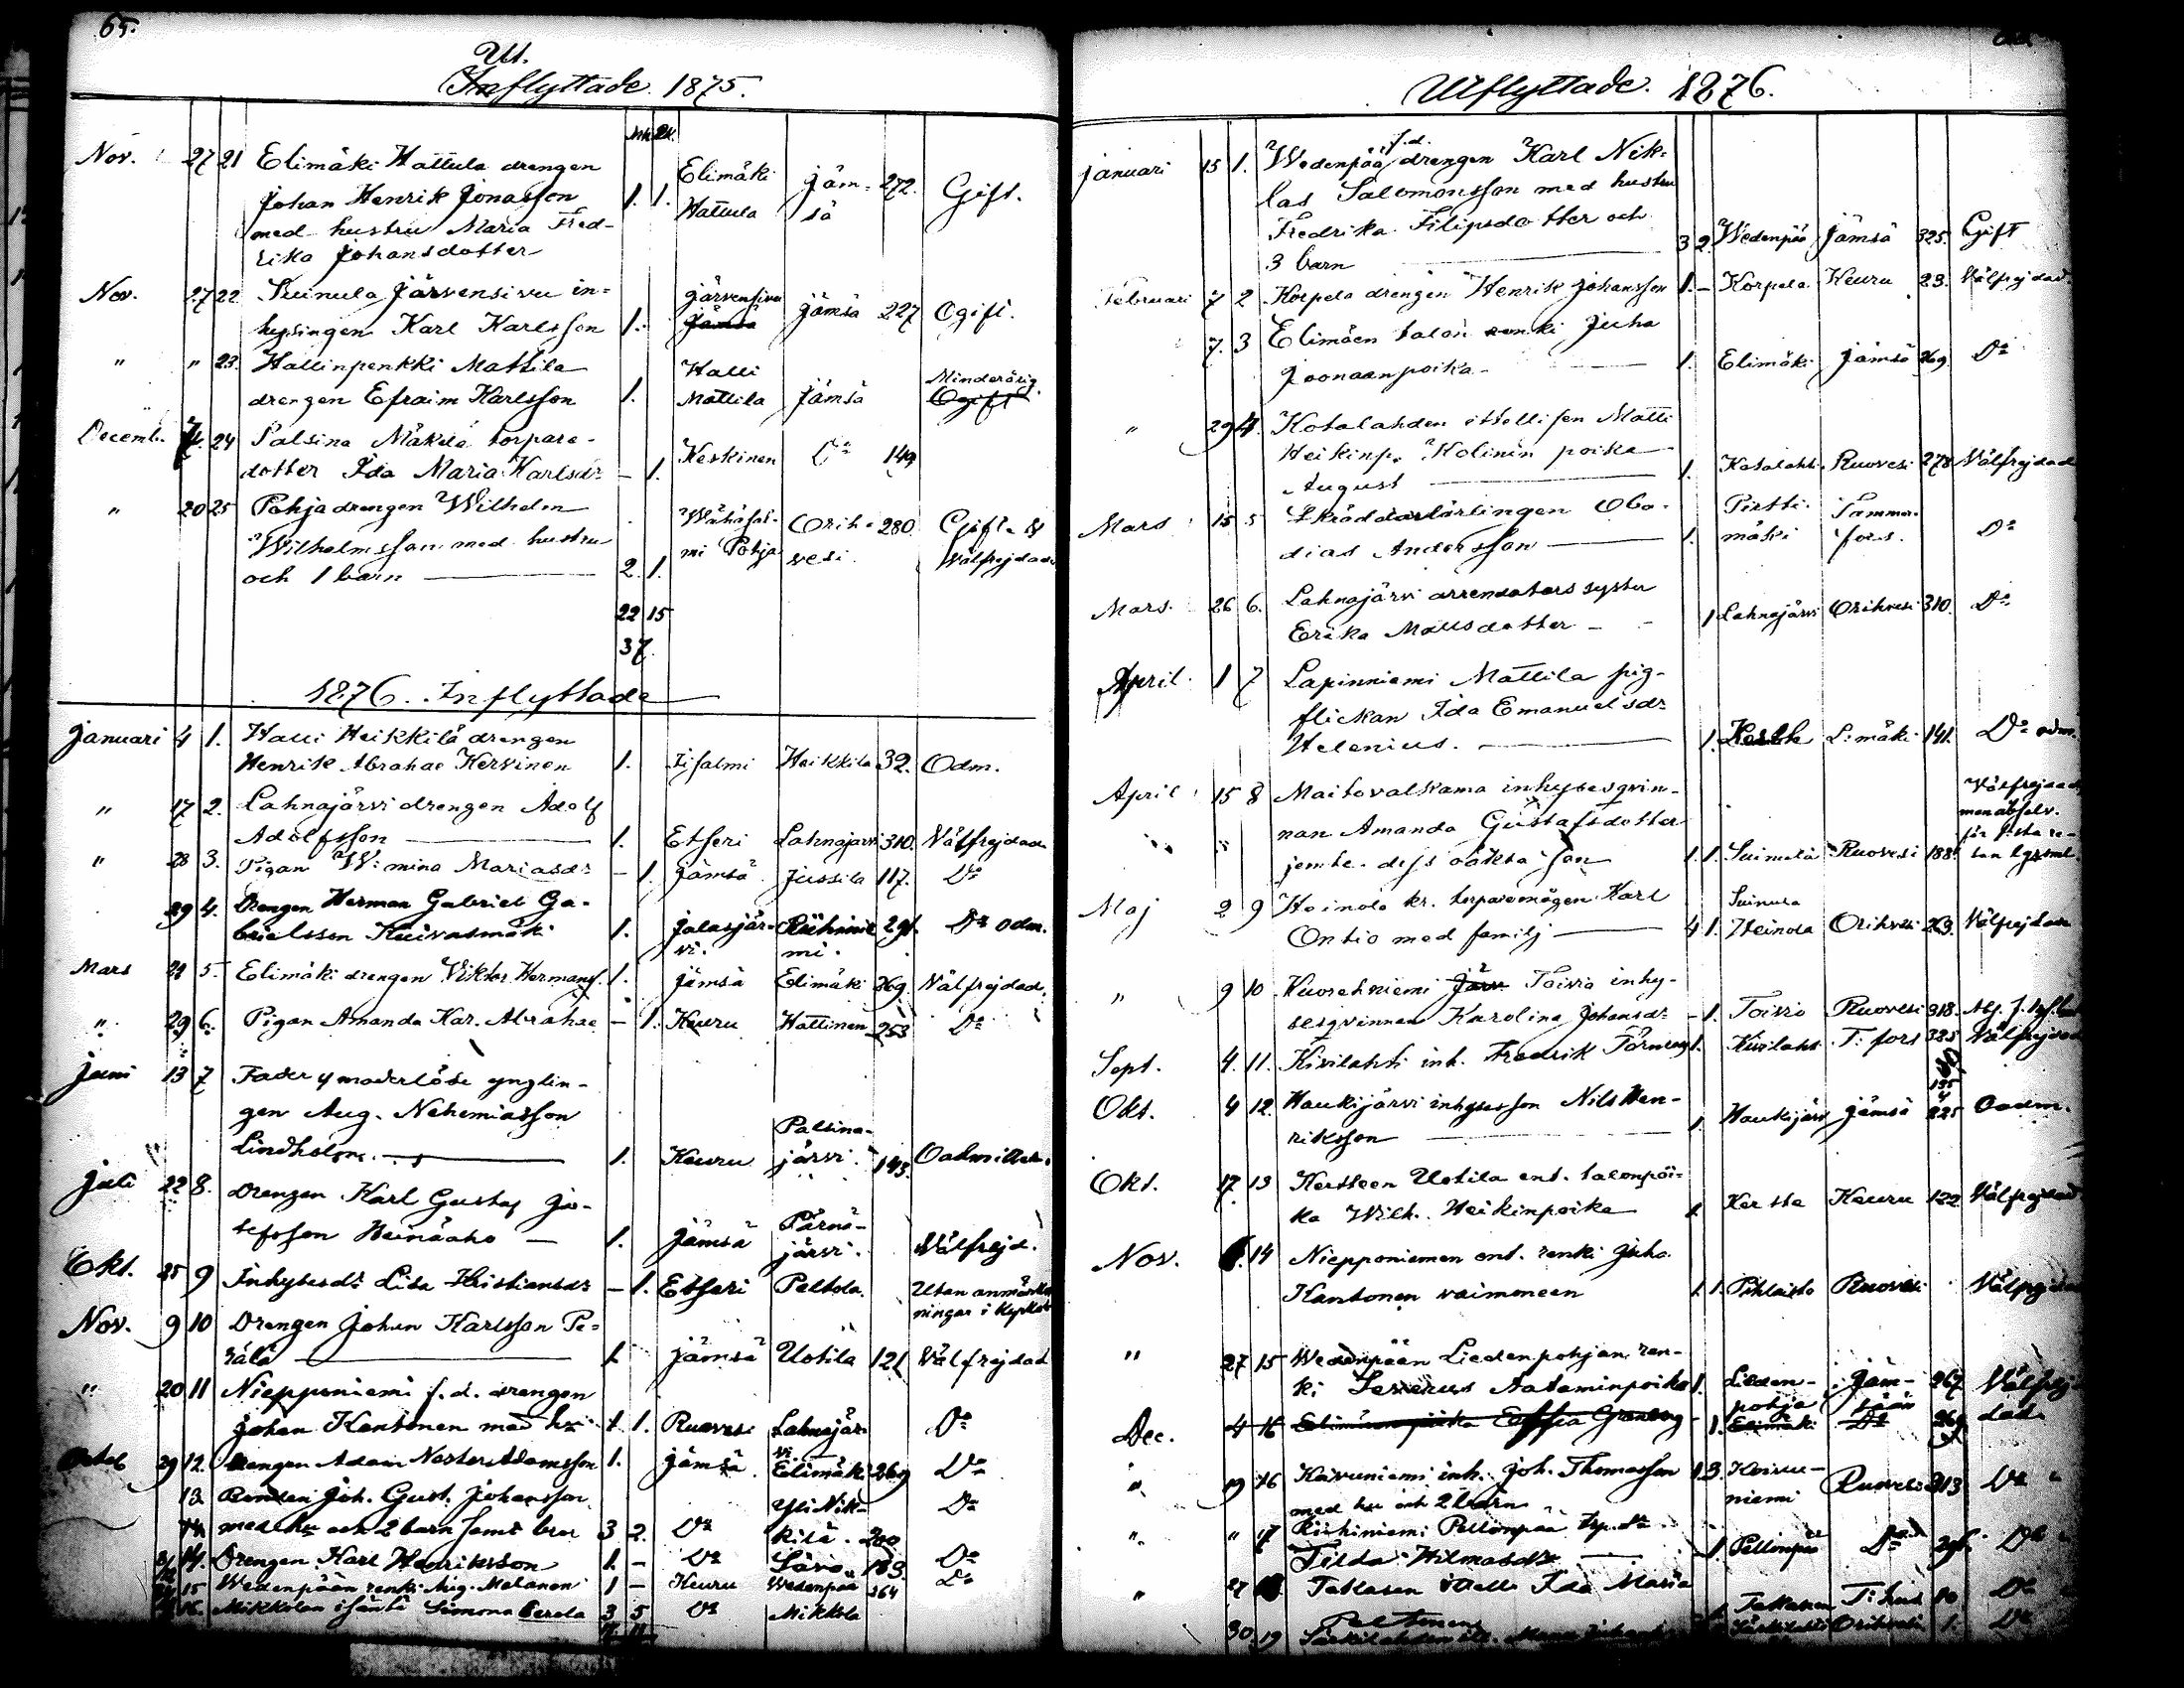 65.
Ut.
Inflyttade 1875.
Mk. Qk.
Nov. 27 21 Elimäki Hattula drengen
Johan Henrik Jonasson 1. 1. Elimäki Jäm- 272. Gift.
med hustru Maria Fred- Hattula sä
rika Johansdotter
Nov. 27 22 Suinula Järvensivu in- Järvensivu
hysingen Karl Karlsson 1. Jämsä Jämsä 227 Ogift.
" " 23. Hallinpenkki Mattila Halli Minderårig.
drengen Efraim Karlsson 1. Mattila Jämsä Ogift
Decemb. 24 Palsina Mäkelä torpare-
dotter Ida Maria Karlsdr - 1. Keskinen Do 149
" 20 25 Pohja drengen Wilhelm
Wilhelmsson med hustru mi Pohja Orih- 280. Gift &
och 1 barn 2. 1. vesi. Välfrejdad
22 15
37.
1876. Inflyttade
Januari 4 1. Halli Heikkilä drengen
Henrik Abrahae Kervinen 1. Iisalmi Heikkilä 32. Odm.
" 17 2. Lahnajärvi drengen Adolf
Adolfsson 1. Etseri Lahnajärvi 310. Välfrejdad
" 28 3. Pigan W:mina Mariasdr - 1. Jämsä Jussila 117. Do
29 4. Drengen Herman Gabriel Ga-
brielsson Kuivasmäki 1. Jalasjär- 291. Do odm.
vi. mi.
Mars 29 5. Elimäki drengen Viktor Hermans. 1. Jämsä Elimäki 269. Välfrejdad.
" 29 6. Pigan Amanda Kar. Abrahae - 1. Keuru Hattinen 253 Do
Juni 13 7 Fader & moderlöse ynglin-
gen Aug. Nehemiasson Palsina-
Lindholm. 1. Keuru järvi. 145.
Juli 22 8. Drengen Karl Gustaf Jo- Pärnä-
sefsson Heinäaho 1. Jämsä järvi. Välfrejd.
Okt. 25 9 Inhysesdr Lisa Kristiansdr - 1. Etseri Peltola. Utan anmärk-
ningar i
Nov. 9 10 Drengen Johan Karlsson Pe-
rälä 1. Jämsä Uotila 121 Välfrejdad
" 20 11 Niepponiemi f.d. drengen
Johan Kantonen med hu 1. 1. Ruovesi Lahnajär- Do
vi
29 12. Drengen Adam Nestori Adamsson 1. Jämsä Elimäki 269 Do
13 Joh. Gust. Johansson Yli Nik-
med hu och 2 barn samt bror 3 2. Do kilä. 200 Do
14. Drengen Karl Henriksson 1. - Do 183. Do
15 Wedenpään renki Aug. Malanen 1 - Keuru Wedenpää 364 Do
16. Mikkolan isäntä Simona Perela 3 5 Do Mikkola
Utflyttade. 1876.
Januari 15 1. Wedenpää f.d. drengen Karl Nik-
las Salomonsson med hustru
Fredrika Filipsdotter och
3 barn 3 2. Wedenpää Jämsä 325. Gift
Februari 7 2 Korpela drengen Henrik Johansson 1. - Korpela Keuru 23. Välfrejdad.
7. 3 Elimäen talon renki Juha
Joonaanpoika 1. Elimäki Jämsä 269 Do
" 29 4 Kotalahden itsellisen Matti
Heikinp. Kolinin poika
August 1. Kotalahti Ruovesi 278 Välfrejdad
Mars 15 5 Skräddarlärlingen Oba- Pirtti- Tammer-
dias Andersson 1. mäki fors. Do
Mars. 26 6. Lahnajärvi arrendators syster
Erika Mattsdotter 1 Lahnajärvi Orihvesi 310. Do
April 1 7 Lapinniemi Mattila pig-
flickan Ida Emanuelsdr
Helenius. 1. L:mäki 141. Do odm.
April 15 8 Maitovalkama inhysesqvin- Välfrejdad,
nan Amanda Gustafsdotter men absolv.
jemte dess oäkta son 1. 1. Suinula Ruovesi 188. för första re-
Maj 2 9 Heinola kr. torparemågen Karl Suinula
Ontio med familj 4 1. Heinola Orihvesi 263. Välfrejdad
" 9 10 Kuorehniemi Järv Toivio inhy-
sesqvinnan Karolina Johansdr - 1. Toivio Ruovesi 318.
Sept. 4. 11. Kivilahti inh. Fredrik Törnroos 1. Kivilahti T:fors 325 Välfrejdad
Okt. 4 12. Haukijärvi inhysesson Nils Hen-
riksson 1. Haukijärvi Jämsä 225 Oadm.
Okt. 17 13 Kertteen Uotila ent. talonpoi-
ka Wilh. Heikinpoika 1. Kertte Keuru 122 Välfrejdad
Nov. 6. 14 Niepponiemen ent. renki Juho
Kantonen vaimoneen 1. 1. Pihlaisto Ruovesi Välfrejdad
" 27 15 Wedenpään Liedenpohjan ren-
ki Severus Aataminpoika 1. Lieden- Jäm- 267 Välfrej-
pohja sään dad.
Dec. 4 16 Elimäen piika Eufsia Granberg - 1. Elimäki Do 269
" 19 16 Kaivuniemi inh. Joh. Thomasson 1 3 Koivu- Ruovesi 313 Do
med hu och 2 barn niemi
" " 17 Riihiniemi Pellonpää trp. dr
Tilda Hilmasdr - 1. Pellonpää Do 291. Do
" 27 18 Tallasen itsell. Ida Maria
Peltonen 1. Tallasen Do
30. 19 1. Do